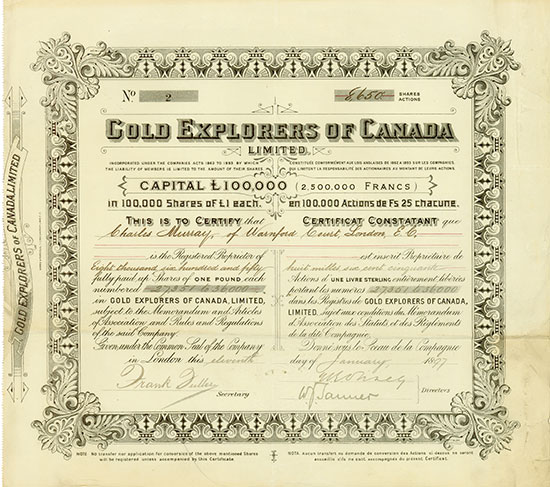 GOLD EXPLORERS OF CANADA, LIMITED
No 2
8,650 SHARES
ACTIONS
GOLD EXPLORERS OF CANADA
LIMITED.
INCORPORATED UNDER THE COMPANIES ACTS 1862 TO 1893 BY WHICH
THE LIABILITY OF MEMBERS IS LIMITED TO THE AMOUNT OF THEIR SHARES
CONSTITUÉE CONFORMÉMENT AUX LOIS ANGLAISES DE 1862 A 1893 SUR LES COMPAGNIES,
QUI LIMITENT LA RESPONSABILITÉ DES ACTIONNAIRES AU MONTANT DE LEURS ACTIONS.
CAPITAL £100,000 (2,500,000 FRANCS)
in 100,000 Shares of £1 each. en 100,000 Actions de Frs 25 chacune.
THIS IS TO CERTIFY that
Charles Murray, of Warnford Court, London, E.C.
is the Registered Proprietor of
Eight thousand six hundred and fifty
fully paid up Shares of ONE POUND each
numbered 27351 @ 36000
in GOLD EXPLORERS OF CANADA, LIMITED,
subject to the Memorandum and Articles
of Association and Rules and Regulations
of the said Company.
Given under the Common Seal of the Company
in London this eleventh
CERTIFICAT CONSTATANT que
est inscrit Propriétaire de
huit milles six cent cinquante
Actions d'UNE LIVRE STERLING entièrement libérées
portant les numéros 27351 @ 36000
dans les Registres de GOLD EXPLORERS OF CANADA,
LIMITED, sujet aux conditions du Memorandum
d'Association des Statuts et des Règlements
de la dite Compagnie.
Donné sous le Sceau de la Compagnie
day of January 1897
Frank
Secretary
Directors
NOTE No transfer nor application for conversion of the above mentioned Shares
will be registered unless accompanied by this Certificate
NOTA Aucun transfert ou demande de conversion des Actions ci dessus ne seront
enregistrés s'ils ne sont accompagnés du présent Certificat.